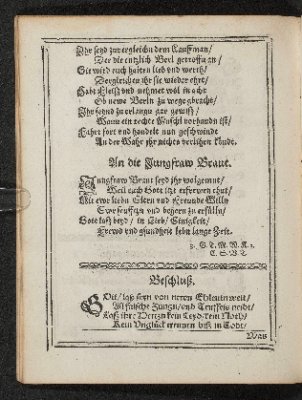 Ihr seyd zuvergleichn dem Kauffman/
Der die cöstlich Perl getroffn an/
Sie wird euch halten lieb und werth/
Dergleichen ihr sie wieder ehrt/
Habt fleiß und nehmet wol in acht
Ob newe Perln zu weg gebracht/
Ihr könnt zu erlangn gar gewiß/
Wann ein rechte Muschl vorhanden ist/
Fahrt fort und handelt nun geschwinde
An der Wahr ihr nichts verlihren
An die Jungfraw Braut.
JUngfraw Braut seyd ihr wolgemut/
Weil euch Gott jtzt erfrewen thut/
Mit ewr lieben Eltern und Freunde Willn
Ewr seufftzn und begern zu erfülln/
Gott laß beyd/ in Lieb/ Einigkeit/
Frewd und gsundheit lebn lange Zeit.
Beschluß.
GOtt/ laß fern von newen Ehleutn weit/
All falsche Zungn/ und Teuffels neidt/
Laß ihre Hertzn kein Leyd/ kein Noth/
Kein Unglück trennen biß in Todt/
Was